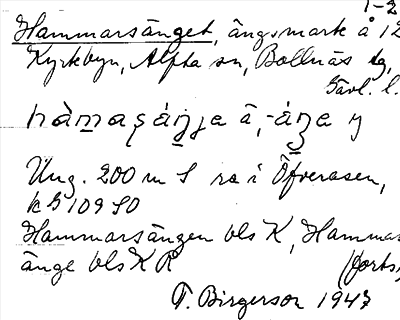 1-2
Hammarsänget, ängsmark å 12
Kyrkbyn, Alfta sn, Bollnäs tg,
Gävl. l.
Ung. 200 m S ra i Öfverasen,
k G 109 SO
Hammarsängen bls K, Hammars
änge bls K R (forts.)
T. Birgerson 1947